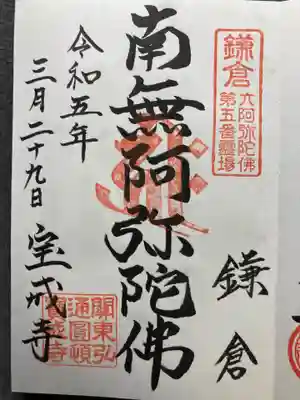 鎌倉
六阿弥陀佛
第五番靈場
鎌倉
南無阿弥陀佛
令和五年
三月二十九日
宝戒寺
關東弘
通圓頓
寶戒寺